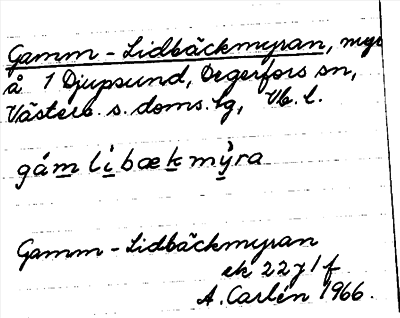 Gamm-Lidbäckmyran, myr
å 1 Djupsund, Degerfors sn,
Västerb. s. doms. lg, Vb. l.
gám lì bæk mỳra
Gamm-Lidbäckmyran
ek 22 j 1 f
A. Carlén 1966.